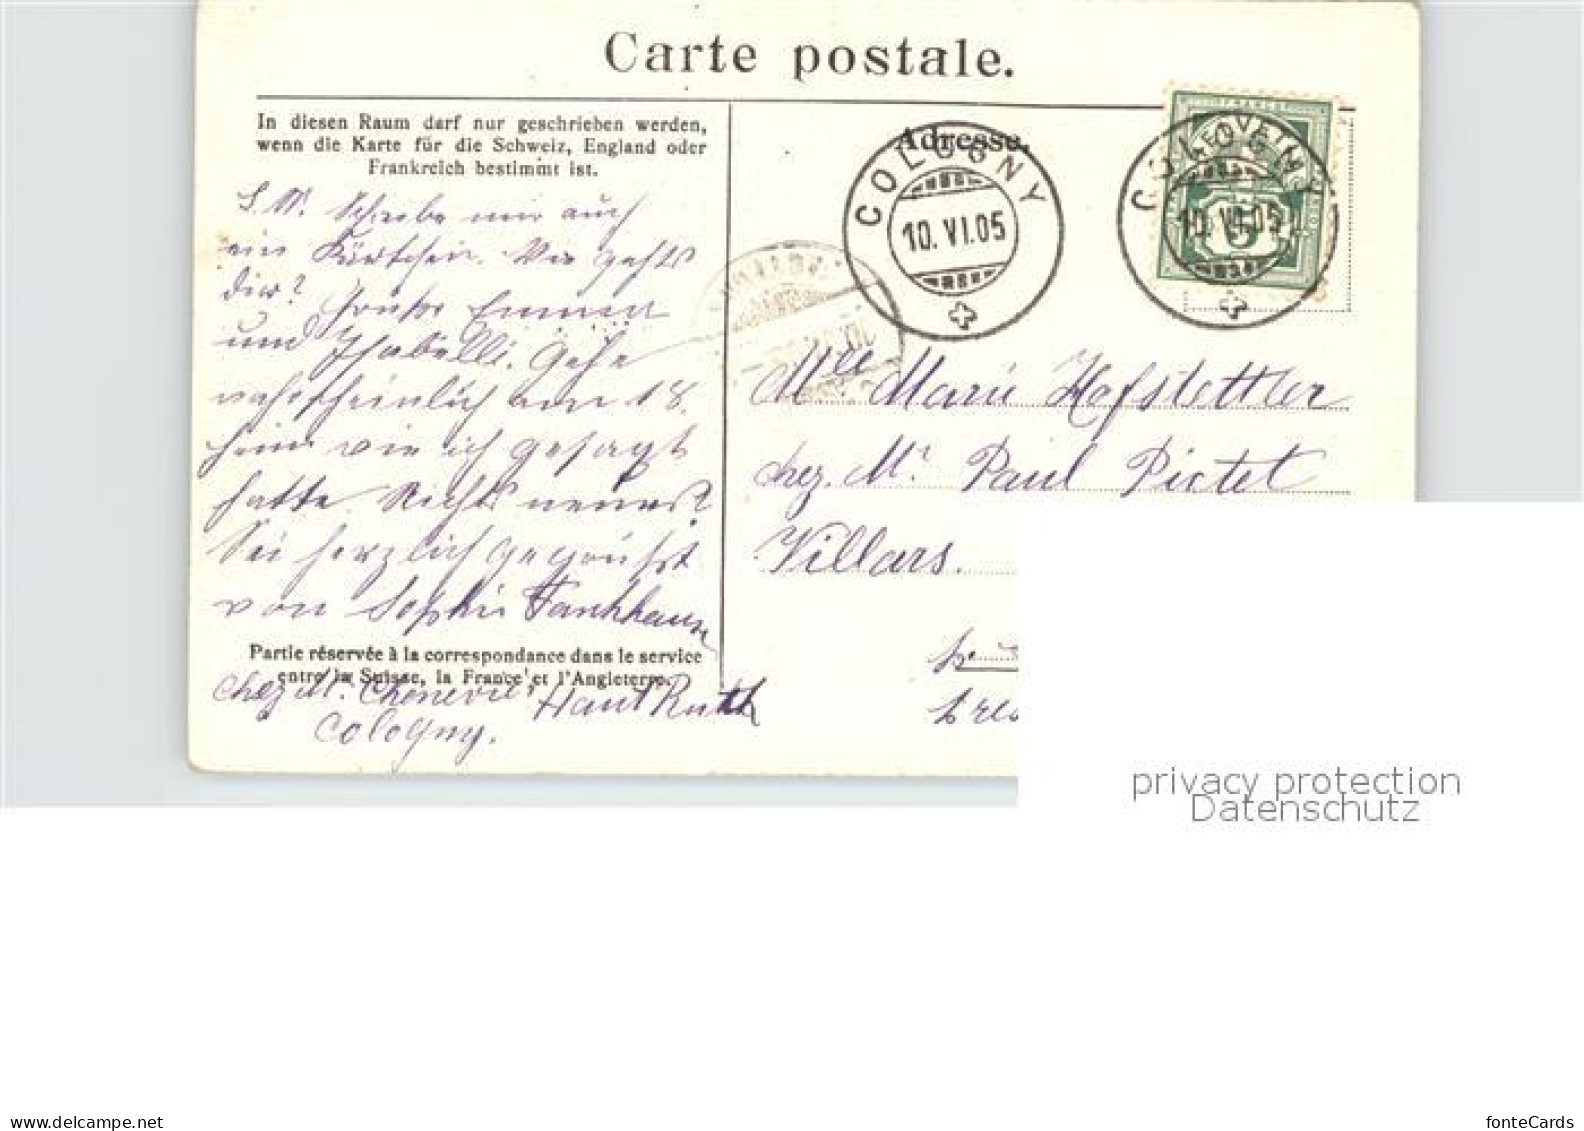 Carte postale.
In diesen Raum darf nur geschrieben werden,
wenn die Karte für die Schweiz, England oder
Frankreich bestimmt ist.
Schreibe mir auch
ein Kärtchen. Wie gehts
dir? Grüße Emma
und Isabelli. Gehe
wahrscheinlich am 18.
heim wie ich gesagt
hatte. Nichts neues?
Sei herzlich gegrüßt
von Sophie Fankhauser
Partie réservée à la correspondance dans le service
entre la Suisse, la France et l'Angleterre.
chez M. Chenevie,
Cologny.
Adresse.
COLOGNY
10. VI. 05
COLOGNY
10. VI. 05
FRANCO
HELVETIA
5
Mlle. Marie Hofstettler
chez. Mr. Paul Pictet
Villars.
privacy protection
Datenschutz
www.delcampe.net
fonteCards